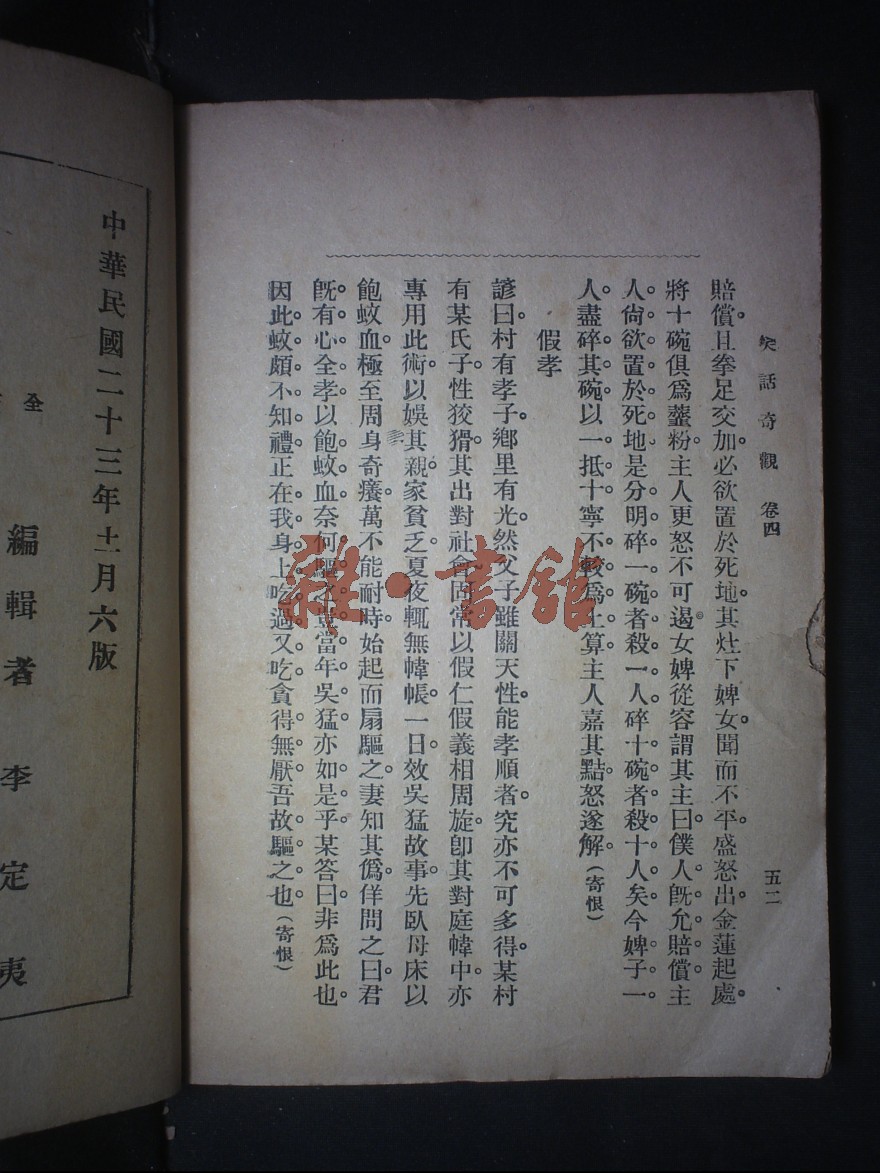 笑話奇觀 卷四 五二
賠償。且拳足交加必欲置於死地。其灶下婢女。聞而不平。盛怒出。金蓮起處。
將十碗俱爲虀粉。主人更怒不可遏。女婢從容謂其主曰。僕人既允賠償。主
人尙欲置於死地。是分明碎一碗者殺一人。碎十碗者殺十人矣。今婢子一
人。盡碎其碗。以一抵十。寧不較爲上算。主人嘉其黠。怒遂解。(寄恨)
假孝
諺曰。村有孝子。鄉里有光。然父子雖關天性。能孝順者。究亦不可多得。某村
有某氏子。性狡猾。其出對社會。固常以假仁假義相周旋。卽其對庭幃中。亦
專用此術。以娛其親。家貧乏。夏夜輒無幃帳。一日。效吳猛故事。先臥母床。以
飽蚊血。極至周身奇癢。萬不能耐。時始起而扇驅之。妻知其僞。佯問之曰。君
旣有心全孝。以飽蚊血。奈何驅之。豈當年吳猛。亦如是乎。某答曰。非爲此也。
因此蚊頗不知禮。正在我身上吃過又吃。貪得無厭。吾故驅之也。(寄恨)
雜·書館
中華民國二十三年十一月六版
全
編輯者 李定夷